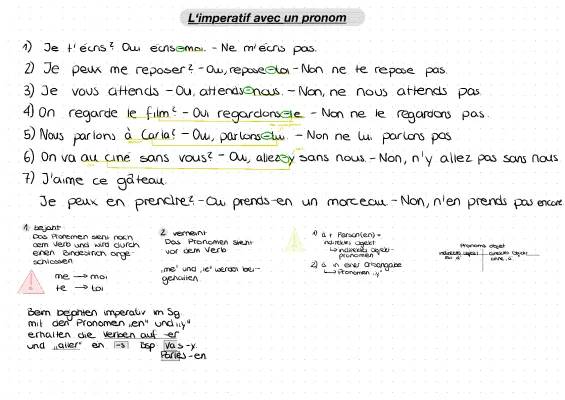 L'imperatif avec un pronom
1) Je t'écris? Oui écris-moi. - Ne m'écris pas.
2) Je peux me reposer? - Oui, repose-toi - Non ne te repose pas.
3) Je vous attends - Oui, attends-nous. - Non, ne nous attends pas.
4) On regarde le film? - Oui regardons-le - Non ne le regardons pas.
5) Nous parlons à Carla? - Oui, parlons-lui. - Non ne lui parlons pas
6) On va au ciné sans vous? - Oui, allez-y sans nous. - Non, n'y allez pas sans nous.
7) J'aime ce gâteau.
Je peux en prendre? - Oui prends-en un morceau. - Non, n'en prends pas encore
1. bejaht
Das Pronomen steht nach
dem Verb und wird durch
einen Bindestrich ange-
schlossen
me → moi
te → toi
2. verneint
Das Pronomen steht
vor dem Verb
"me" und "te" werden bei-
gehalten
1) à + Person(en) =
indirektes Objekt
↳ indirektes Objekt-
pronomen
2) à in einer Ortsangabe
↳ Pronomen "y"
Pronoms objet
indirektes Objekt direktes Objekt
ohne "à"
Beim bejahten Imperativ im Sg.
mit den Pronomen "en" und "y"
erhalten die Verben auf -er
und "aller" ein -s Bsp. Vas-y.
Parles-en